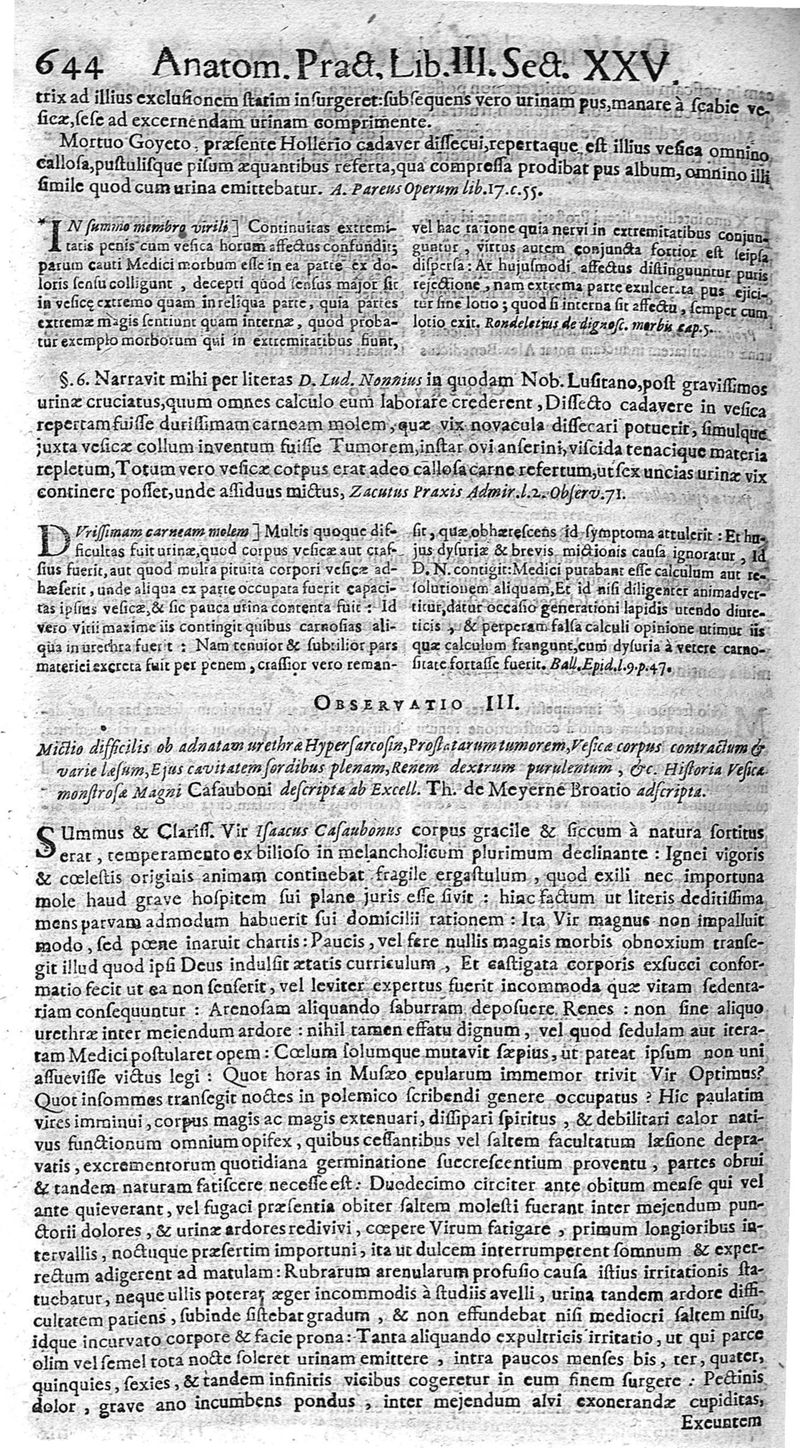 644 Anatom. Pract. Lib. III. Sect. XXV.
trix ad illius exclusionem ſtatim inſurgeret: ſubſequens vero urinam pus, manare à ſcabie ve-
ſicæ, ſeſe ad excernendam urinam comprimente.
Mortuo Goyeto, præſente Hollerio cadaver diſſecui, repertaque eſt illius veſica omnino
calloſa, puſtuliſque piſum æquantibus referta, qua compreſſa prodibat pus album, omnino illi
ſimile quod cum urina emittebatur. A. Pareus Operum lib. 17. c. 55.
*IN ſummo membro virili] Continuitas extremi-
tatis penis cum veſica horum affectus confundit;
parum cauti Medici morbum eſſe in ea parte ex do-
loris ſenſu colligunt, decepti quod ſenſus major ſit
in veſicę extremo quam in reliqua parte, quia partes
extremæ magis ſentiunt quam internæ, quod proba-
tur exemplo morborum qui in extremitatibus fiunt,
vel hac ratione quia nervi in extremitatibus conjun-
guntur, virtus autem conjuncta fortior eſt ſeipſa
diſperſa: At hujuſmodi affectus diſtinguuntur puris
rejectione, nam extrema parte exulcerata pus ejici-
tur ſine lotio; quod ſi interna ſit affecta, ſemper cum
lotio exit. Rondeletius de dignoſc. morbis cap. 5.
§. 6. Narravit mihi per literas D. Lud. Nonnius in quodam Nob. Luſitano, poſt graviſſimos
urinæ cruciatus, quum omnes calculo eum laborare crederent, Diſſecto cadavere in veſica
repertam fuiſſe duriſſimam carneam molem, quæ vix novacula diſſecari potuerit, ſimulque
juxta veſicæ collum inventum fuiſſe Tumorem, inſtar ovi anſerini, viſcida tenacique materia
repletum, Totum vero veſicæ corpus erat adeo calloſa carne refertum, ut ſex uncias urinæ vix
continere poſſet, unde aſſiduus mictus, Zacutus Praxis Admir. l. 2. Obſerv. 71.
DUriſſimam carneam molem] Multis quoque dif-
ficultas fuit urinæ, quod corpus veſicæ aut craſ-
ſius fuerit, aut quod multa pituita corpori veſicæ ad-
hæſerit, unde aliqua ex parte occupata fuerit capaci-
tas ipſius veſicæ, & ſic pauca urina contenta fuit: Id
vero vitii maxime iis contingit quibus carnoſias ali-
qua in urethra fuerit: Nam tenuior & ſubtilior pars
materiei excreta fuit per penem, craſſior vero reman-
ſit, quæ obhæreſcens id ſymptoma attulerit: Et hu-
jus dyſuriæ & brevis mictionis cauſa ignoratur, Id
D. N. contigit: Medici putabant eſſe calculum aut re-
ſolutionem aliquam, Et id niſi diligenter animadver-
titur, datur occaſio generationi lapidis utendo diure-
ticis, & perperam falſa calculi opinione utimur iis
quæ calculum frangunt, cum dyſuria à vetere carno-
ſitate fortaſſe fuerit. Ball. Epid. l. 9. p. 47.
OBSERVATIO III.
Mictio difficilis ob adnatam urethræ Hyperſarcoſin, Proſtatarum tumorem, Veſicæ corpus contractum &
varie læſum, Ejus cavitatem ſordibus plenam, Renem dextrum purulentum, &c. Hiſtoria Veſicæ
monſtroſæ Magni Caſauboni deſcripta ab Excell. Th. de Meyerne Broatio adſcripta.
SUmmus & Clariſſ. Vir Iſaacus Caſaubonus corpus gracile & ſiccum à natura ſortitus
erat, temperamento ex bilioſo in melancholicum plurimum declinante: Ignei vigoris
& cœleſtis originis animam continebat fragile ergaſtulum, quod exili nec importuna
mole haud grave hoſpitem ſui plane juris eſſe ſivit: hinc factum ut literis deditiſſima
mens parvam admodum habuerit ſui domicilii rationem: Ita Vir magnus non impalluit
modo, ſed pœne inaruit chartis: Paucis, vel fere nullis magnis morbis obnoxium tranſe-
git illud quod ipſi Deus indulſit ætatis curriculum, Et caſtigata corporis exſucci confor-
matio fecit ut ea non ſenſerit, vel leviter expertus fuerit incommoda quæ vitam ſedenta-
riam conſequuntur: Arenoſam aliquando ſaburram depoſuere Renes: non ſine aliquo
urethræ inter meiendum ardore: nihil tamen effatu dignum, vel quod ſedulam aut itera-
tam Medici poſtularet opem: Cœlum ſolumque mutavit ſæpius, ut pateat ipſum non uni
aſſueviſſe victus legi: Quot horas in Muſæo epularum immemor trivit Vir Optimus?
Quot inſomnes tranſegit noctes in polemico ſcribendi genere occupatus? Hic paulatim
vires imminui, corpus magis ac magis extenuari, diſſipari ſpiritus, & debilitari calor nati-
vus functionum omnium opifex, quibus ceſſantibus vel ſaltem facultatum læſione depra-
vatis, excrementorum quotidiana germinatione ſuccreſcentium proventu, partes obrui
& tandem naturam fatiſcere neceſſe eſt: Duodecimo circiter ante obitum menſe qui vel
ante quieverant, vel fugaci præſentia obiter ſaltem moleſti fuerant inter mejendum pun-
ctorii dolores, & urinæ ardores redivivi, cœpere Virum fatigare, primum longioribus in-
tervallis, noctuque præſertim importuni, ita ut dulcem interrumperent ſomnum & exper-
rectum adigerent ad matulam: Rubrarum arenularum profuſio cauſa iſtius irritationis ſta-
tuebatur, neque ullis poterat æger incommodis à ſtudiis avelli, urina tandem ardore diffi-
cultatem patiens, ſubinde ſiſtebat gradum, & non effundebat niſi mediocri ſaltem niſu,
idque incurvato corpore & facie prona: Tanta aliquando expultricis irritatio, ut qui parce
olim vel ſemel tota nocte ſoleret urinam emittere, intra paucos menſes bis, ter, quater,
quinquies, ſexies, & tandem infinitis vicibus cogeretur in eum finem ſurgere: Pectinis
dolor, grave ano incumbens pondus, inter mejendum alvi exonerandæ cupiditas,
Exeuntem